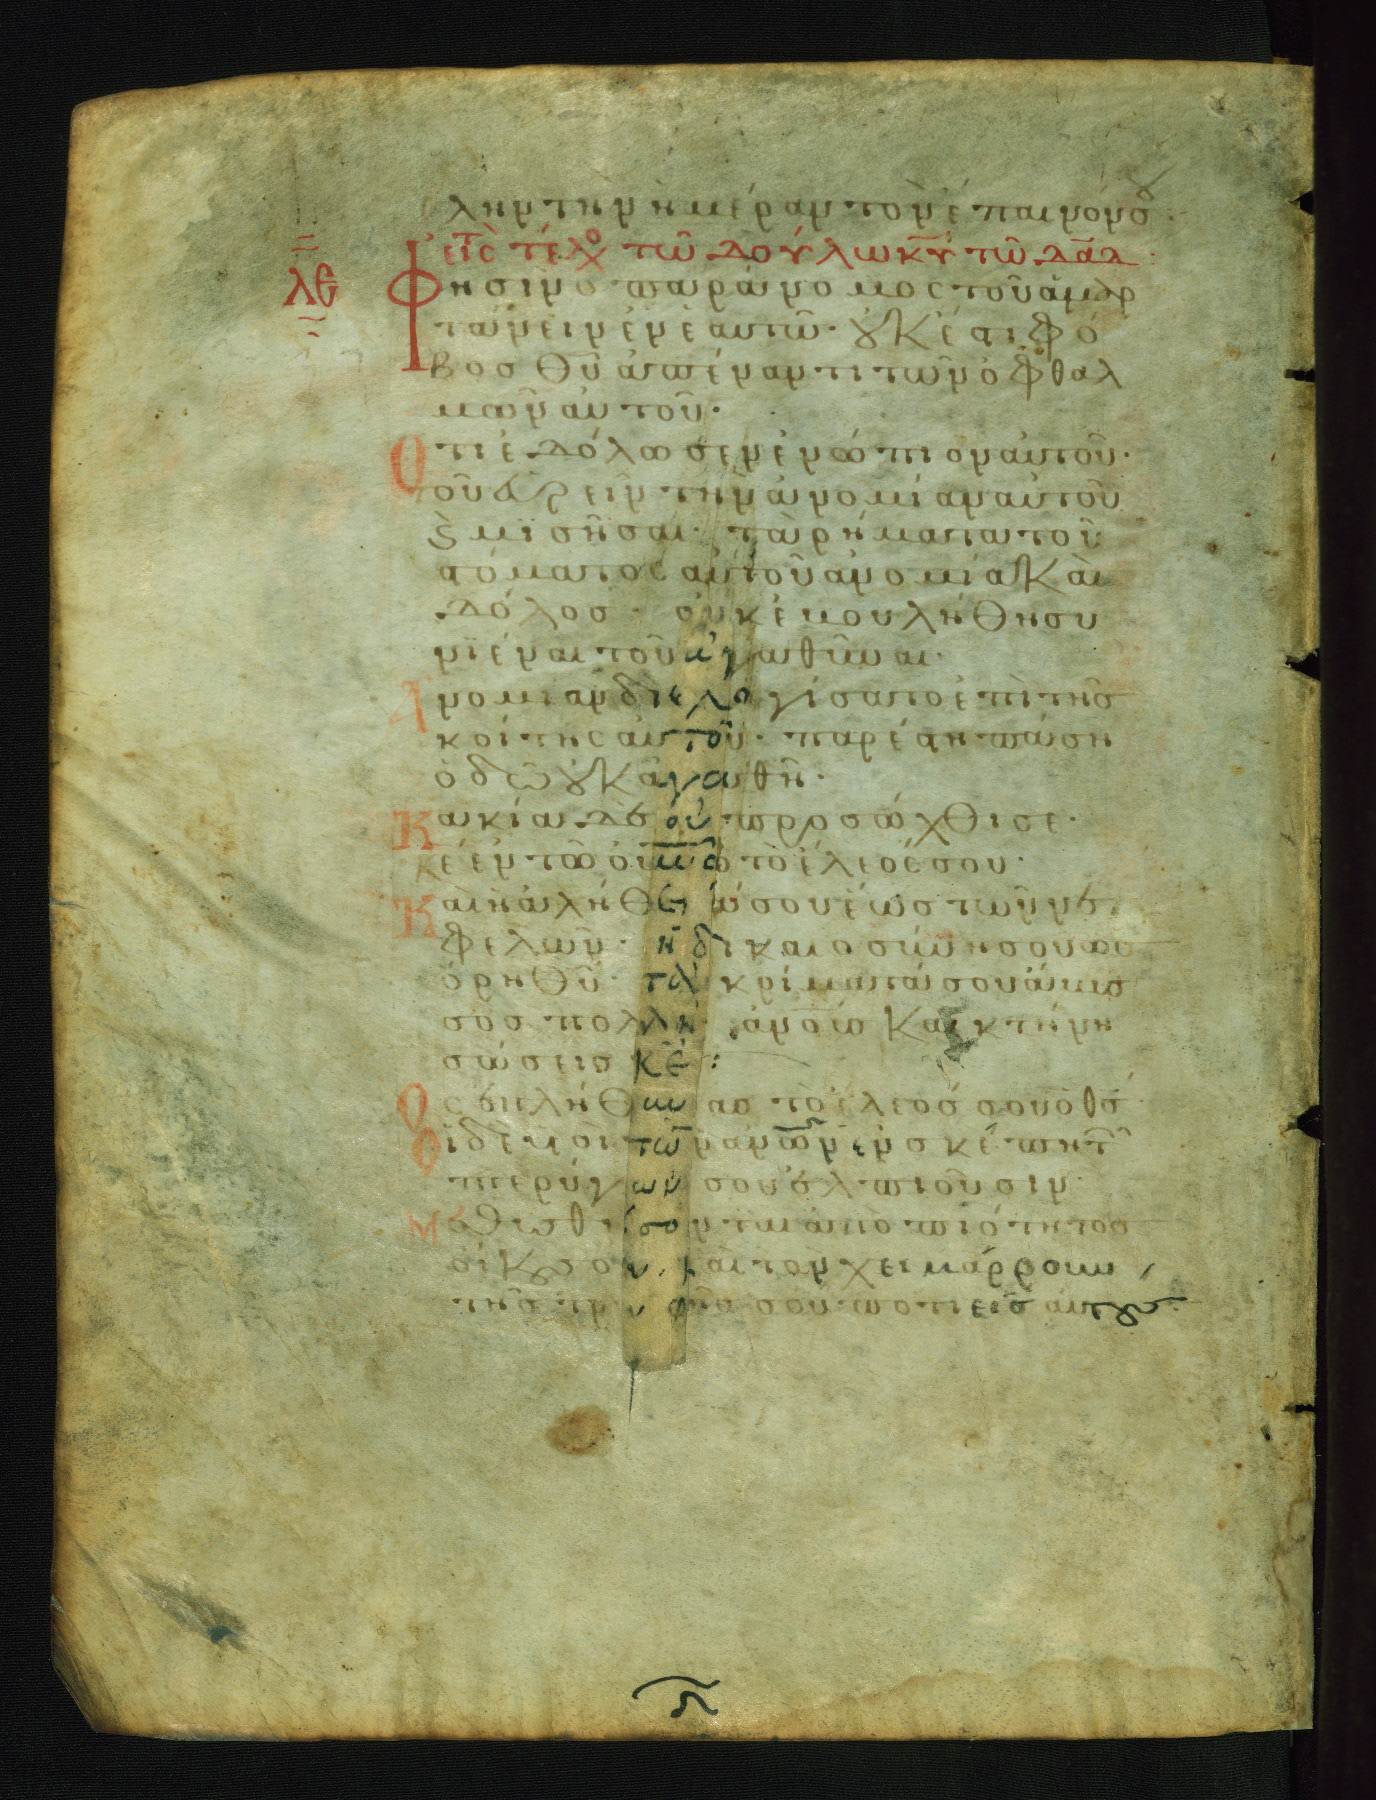 λην την ημέραν τὸν ἔπαινόν σου·
εἰς τὸ τέλος τῶ δούλω κῡ τῶ δᾱδ·
λε
Φησὶν ὁ παράνομος τοῦ ἁμαρ
τάνειν ἐν ἑαυτῶ· οὐκ ἔστι φό
βος θῡ ἀπέναντι τῶν ὀφθαλ
μῶν αὐτοῦ·
Οτι ἐδόλωσεν ἐνώπιον αὐτοῦ·
τοῦ εὑρεῖν τὴν ἀνομίαν αὐτοῦ
καὶ μισῆσαι· τὰ ρήματα τοῦ
στόματος αὐτοῦ ἀνομία καὶ
δόλος· οὐκ ἐβουλήθη συ
νιέναι τοῦ ἀγαθῦναι·
Ανομίαν διελογίσατο ἐπὶ τῆς
κοίτης αὐτοῦ· παρέστη πάση
ὁδῶ οὐκ ἀγαθῆ·
Κακία δὲ οὐ προσώχθισε·
κε ἐν τῶ οὐνῶ τὸ ἔλεός σου·
Και ἡ ἀλήθειά σου ἕως τῶν νε
φελῶν· ἡ δικαιοσύνη σου ὡς
ὄρη θῡ· τὰ κρίματά σου ἄβυσ
σος πολλή· ἀνους καὶ κτήνη
σώσεις κε:
Ως ἐπλήθυνας τὸ ἔλεός σου ὁ θς·
οἱ δὲ υἱοὶ τῶν ανων ἐν σκέπη τῶν
πτερύγων σου ἐλπιοῦσιν·
Μεθυσθήσονται ἀπὸ πιότητος
οἴκου σου· καὶ τὸν χειμάρρουν
τῆς τρυφῆς σου ποτιεῖς αὐτούς·